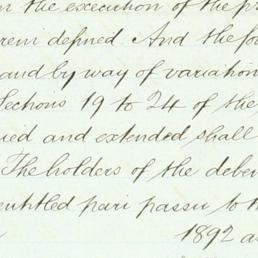 in the execution of the
defined And the
and by way of variation
Sections 19 to 24 of the
and extended shall
The holders of the
entitled pari passu to
1892